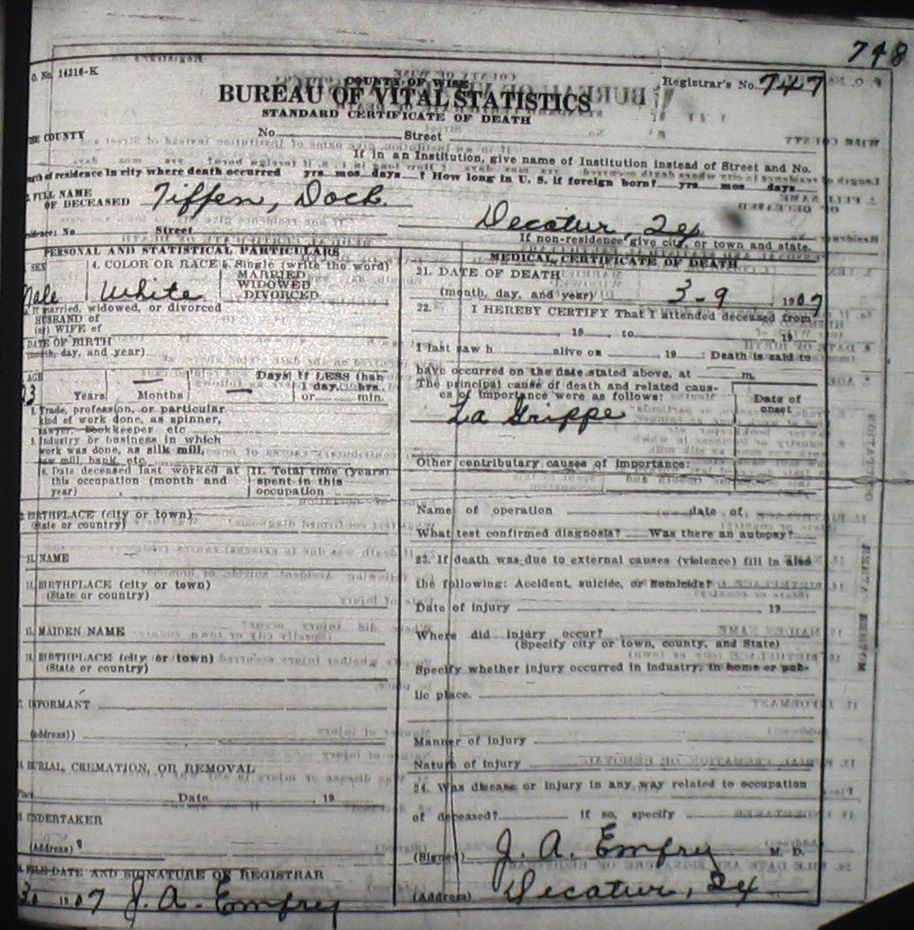 748
O. No. 14216-K
COUNTY OF WISE
Registrar's No. 747
BUREAU OF VITAL STATISTICS
STANDARD CERTIFICATE OF DEATH
SE COUNTY No. Street
If in an Institution, give name of Institution instead of Street and No.
gth of residence in city where death occurred yrs mos days ? How long in U. S. if foreign born? yrs mos days
FULL NAME
OF DECEASED Tiffen, Dock.
Decatur, Tex
No Street
If non-residence give city, or town and state.
PERSONAL AND STATISTICAL PARTICULARS
SEX
Male
4. COLOR OR RACE
White
5. Single (write the word)
MARRIED
WIDOWED
DIVORCED
If married, widowed, or divorced
HUSBAND of
(or) WIFE of
DATE OF BIRTH
(month, day, and year)
AGE
Years
Months —
Days —
If LESS than
1 day, hrs.
or min.
Trade, profession, or particular
kind of work done, as spinner,
sawyer, bookkeeper, etc
Industry or business in which
work was done, as silk mill,
saw mill, bank, etc.
Date deceased last worked at
this occupation (month and
year)
11. Total time (years)
spent in this
occupation
BIRTHPLACE (city or town)
(State or country)
NAME
BIRTHPLACE (city or town)
(State or country)
MAIDEN NAME
BIRTHPLACE (city or town)
(State or country)
INFORMANT
(address)
BURIAL, CREMATION, OR REMOVAL
Place Date 19
UNDERTAKER
(Address)
FILE DATE AND SIGNATURE OF REGISTRAR
1907 J. A. Emfry
MEDICAL CERTIFICATE OF DEATH
21. DATE OF DEATH
(month, day, and year) 3-9 1907
22. I HEREBY CERTIFY That I attended deceased from
19 , to 19
I last saw h alive on 19 ; Death is said to
have occurred on the date stated above, at m.
The principal cause of death and related caus-
es of importance were as follows:
Date of
onset
La Grippe
Other contributary causes of importance:
Name of operation date of
What test confirmed diagnosis? Was there an autopsy?
23. If death was due to external causes (violence) fill in also
the following: Accident, suicide, or homicide?
Date of injury 19
Where did injury occur?
(Specify city or town, county, and State)
Specify whether injury occurred in industry, in home or pub-
lic place.
Manner of injury
Nature of injury
24. Was disease or injury in any way related to occupation
of deceased? If so, specify
(Signed) J. A. Emfry M. D.
(Address) Decatur, Tex